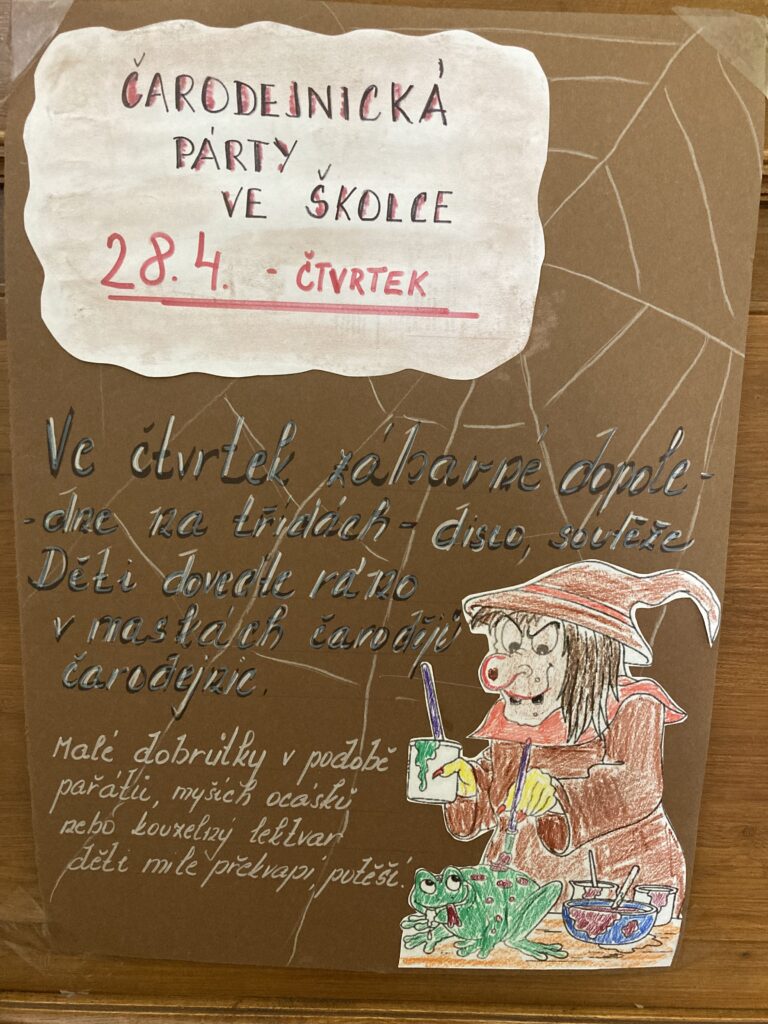 ČARODEJNICKÁ
PÁRTY
VE ŠKOLCE
28.4. - ČTVRTEK
Ve čtvrtek zábavné dopole-
-dne na třídách - disco, soutěže
Děti dovedte ráno
v maskách čarodějů
čarodejnic.
Malé dobrůtky v podobě
pařátů, myších ocásků
nebo kouzelný lektvar
děti mile překvapí, potěší.